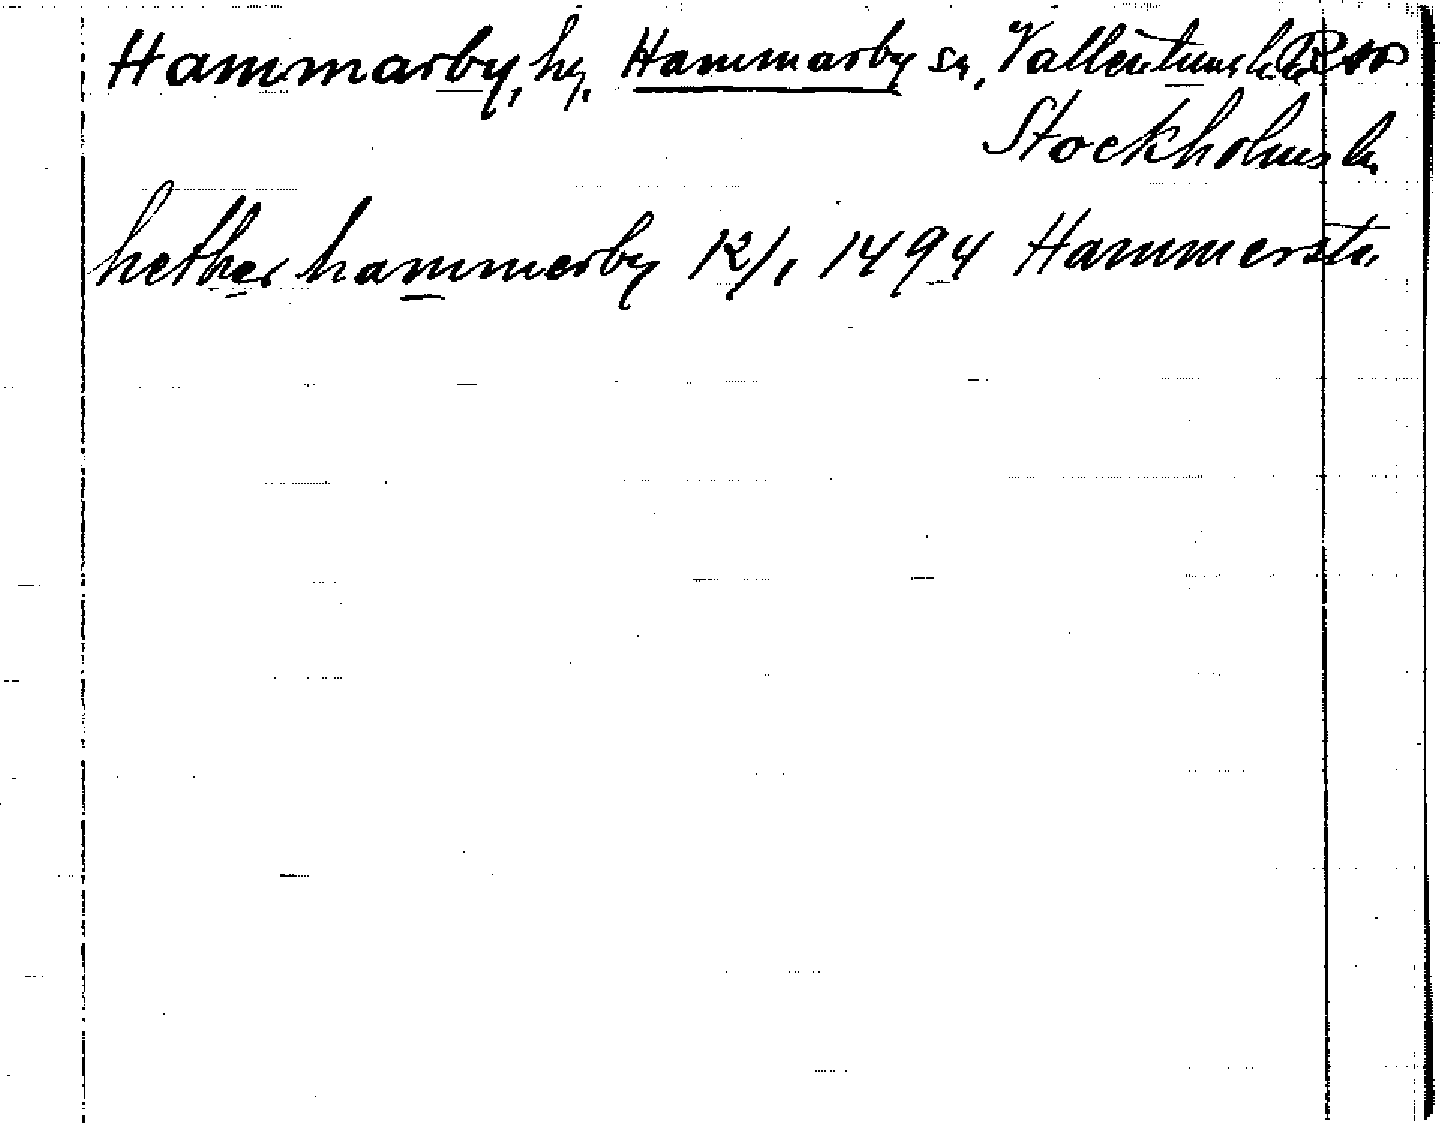 Hammarby, hg, Hammarby sn, Vallentuna hd
Stockholms län
hether hammerby 12/1 1494 Hammersta